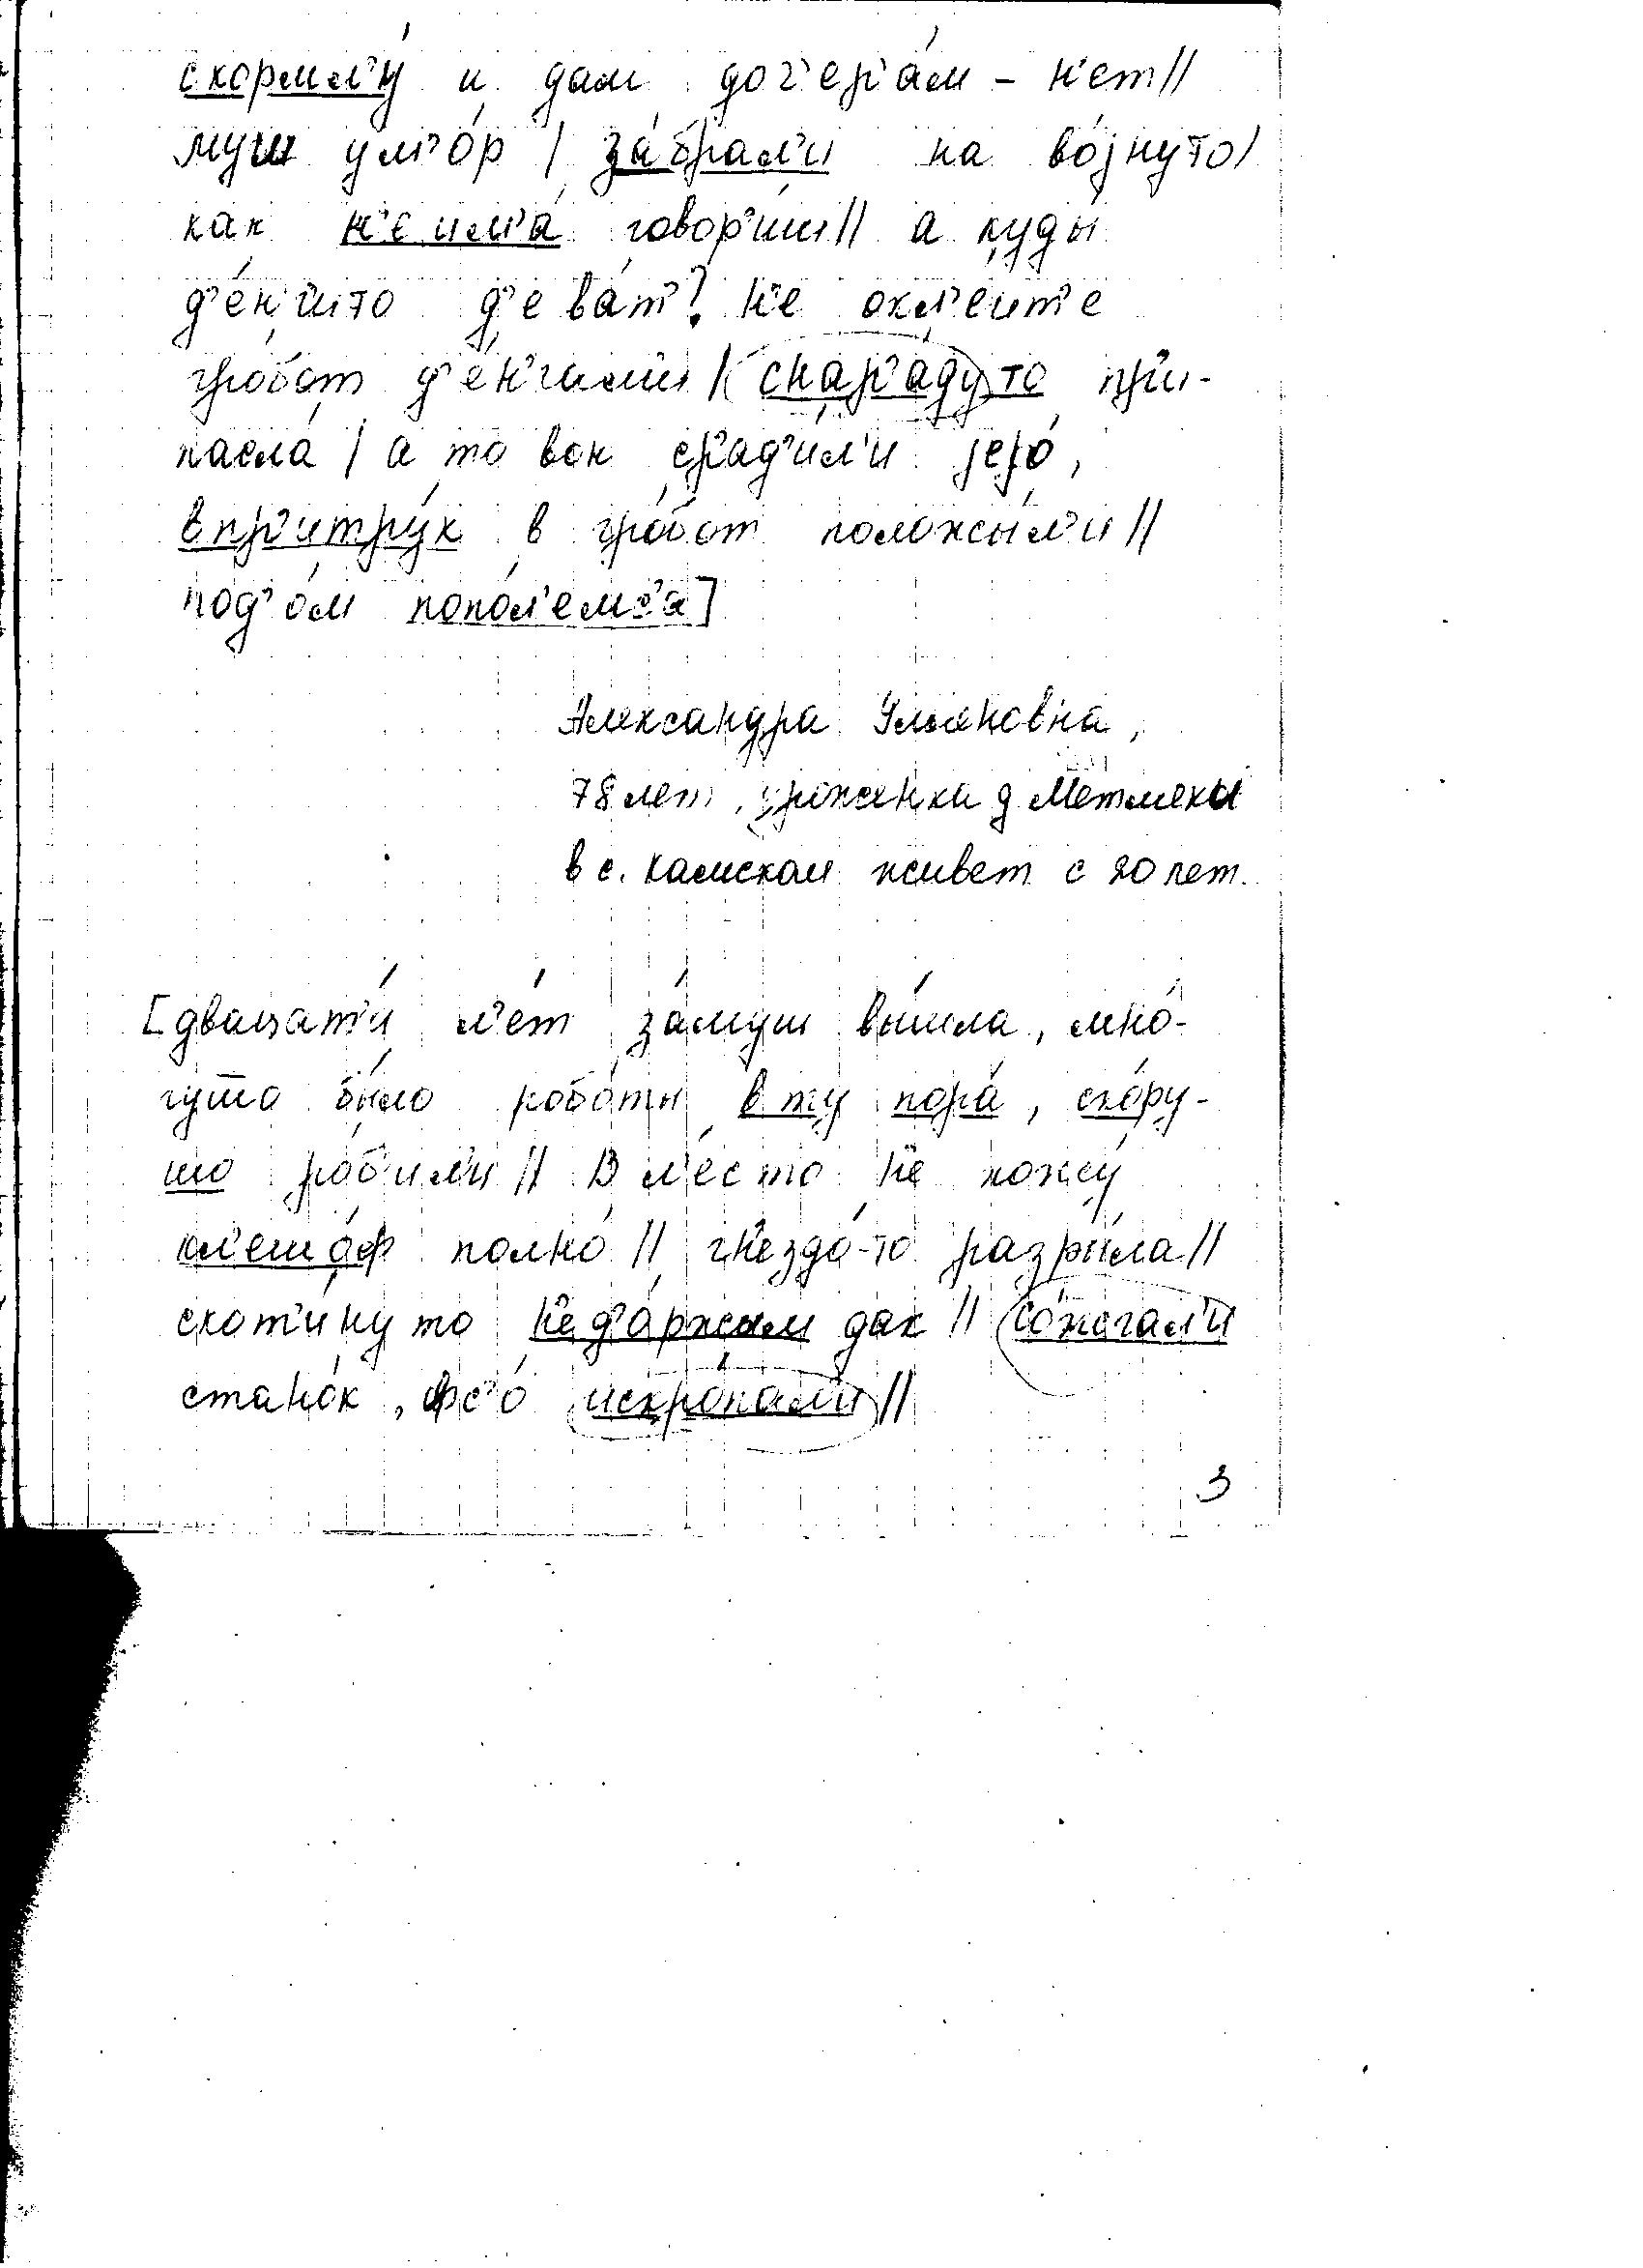 скормл'у́ и дам доч'ер'а́м – н'ет//
муш ум'о́р / за́брал'и на во́jнуто/
как н'е има́ говор'и́ш// а куды́
д'е́н'гито д'ева́т'? н'е окл'еит'е
гро́бот д'е́н'гами / снар'а́дуто при-
пасла́ / а то вон ср'ад'и́л'и jejо́,
впр'итру́к в гро́бот положы́л'и//
под'о́м попо́л'емс'а]
Александра Ульяновна,
78 лет, уроженка д Метляки
в с. Камском живет с 20 лет.
[двацат'и́ л'е́т за́муш вы́шла, мно́-
гуто бы́ло робо́ты в ту пора́, ско́ру-
шо ро́б'ил'и// В м'е́сто н'е хожу́
кл'ешо́ф полно́// гн'ездо́-то разры́ла//
скот'и́нуто н'е д'а́ржым дак// со́жгал'и
стано́к, фс'о́ искропа́л'и//
3